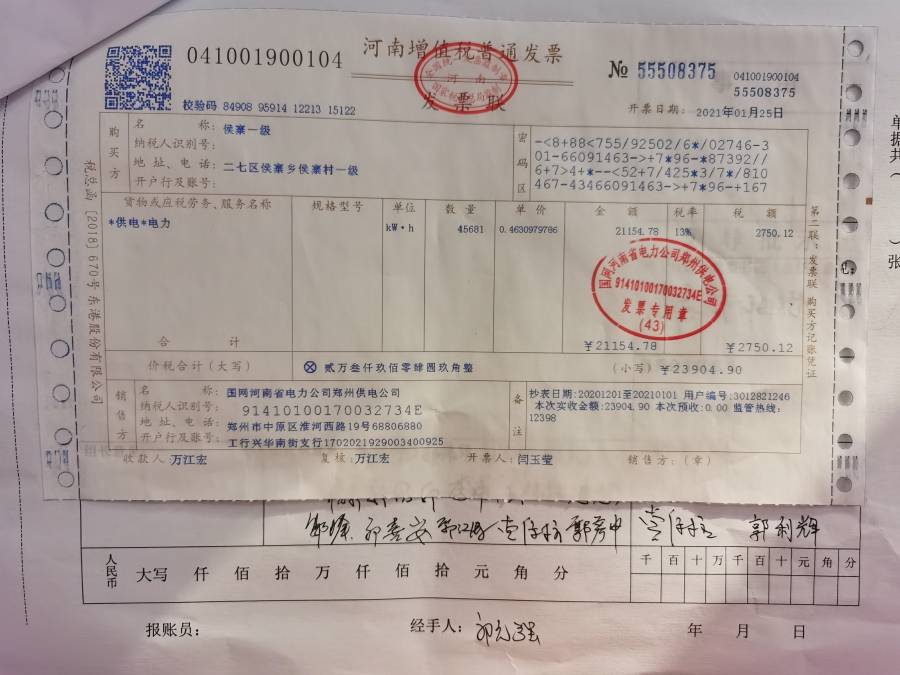 041001900104
河南增值税普通发票
发票联
№ 55508375
041001900104
55508375
校验码 84908 95914 12213 15122
开票日期: 2021年01月25日
购买方
名 称: 侯寨一级
纳税人识别号:
地 址、电 话: 二七区侯寨乡侯寨村一级
开户行及账号:
密码区
-<8+88<755/92502/6*/02746-3
01-66091463->+7*96-*87392//
6+7>4+*--<52+7/425*3/7*/810
467-43466091463->+7*96-+167
货物或应税劳务、服务名称 规格型号 单位 数 量 单 价 金 额 税率 税 额
*供电*电力 kW·h 45681 0.4630979786 21154.78 13% 2750.12
国网河南省电力公司郑州供电公司
91410100170032734E
发票专用章
(43)
合 计 ¥21154.78 ¥2750.12
价税合计（大写） ⊗ 贰万叁仟玖佰零肆圆玖角整 （小写）¥23904.90
销售方
名 称: 国网河南省电力公司郑州供电公司
纳税人识别号: 91410100170032734E
地 址、电 话: 郑州市中原区淮河西路19号68806880
开户行及账号: 工行兴华南街支行1702021929003400925
备注
抄表日期:20201201至20210101 用户编号:3012821246
本次实收金额:23904.90 本次预收:0.00 监管热线:
12398
收款人: 万江宏 复核: 万江宏 开票人: 闫玉莹 销售方:（章）
税总函［2018］670号 东港股份有限公司
第二联:发票联 购买方记账凭证
郭利辉
人民币 大写 仟 佰 拾 万 仟 佰 拾 元 角 分
千 百 十 万 千 百 十 元 角 分
报账员: 经手人: 年 月 日